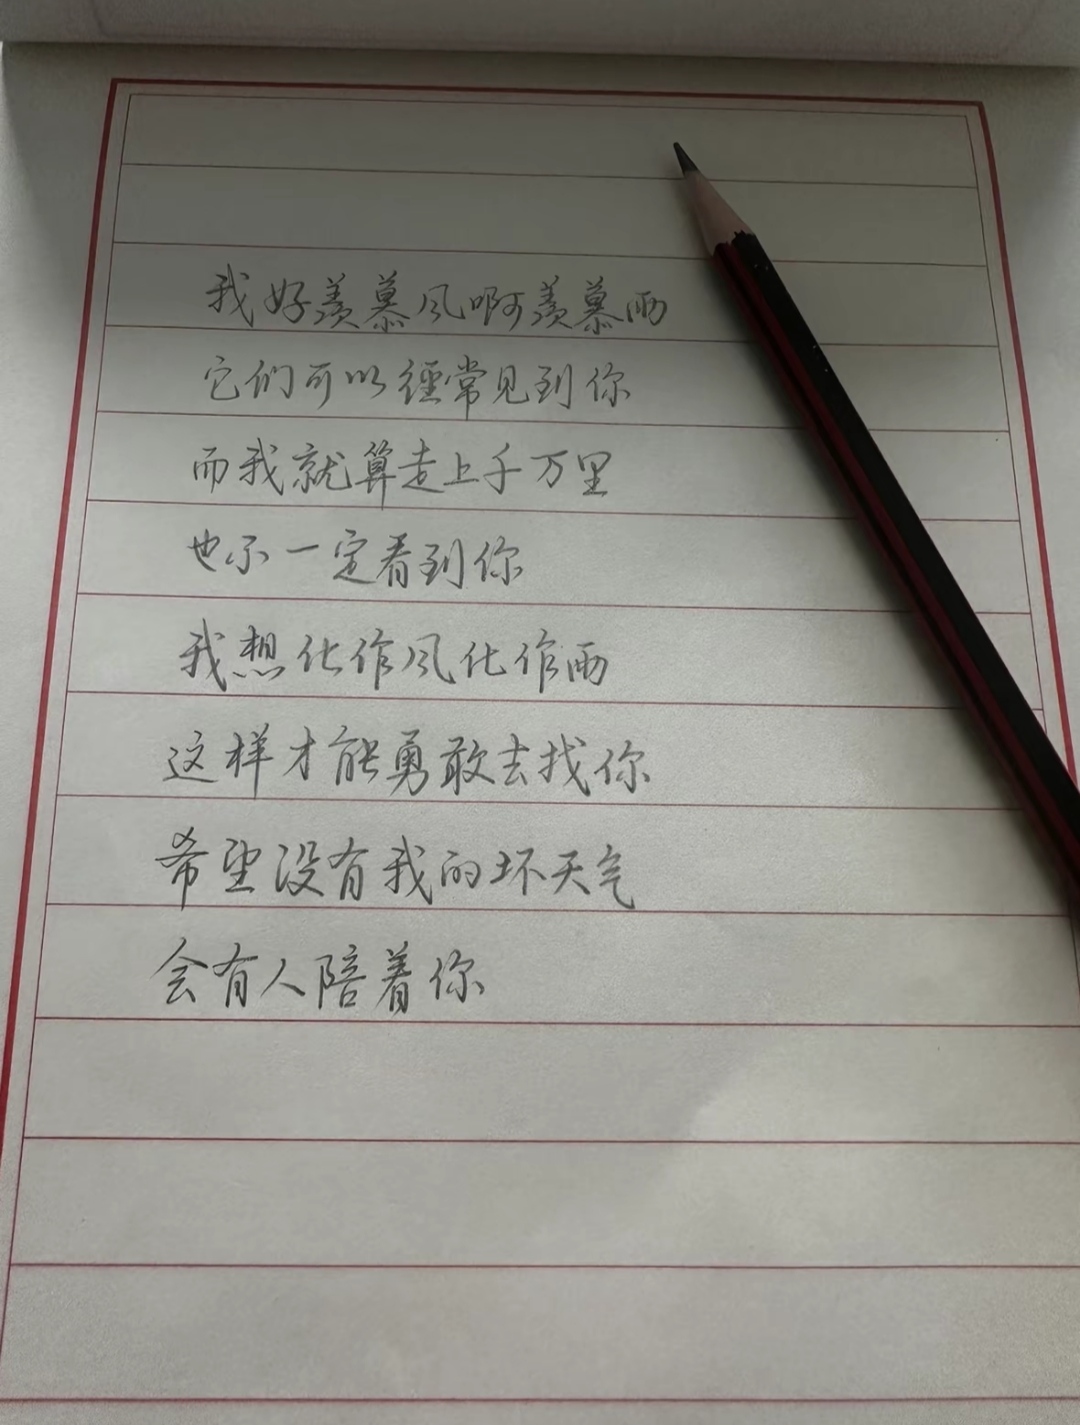 我好羡慕风啊羡慕雨
它们可以經常见到你
而我就算走上千万里
也不一定看到你
我想化作风化作雨
这样才能勇敢去找你
希望没有我的坏天气
会有人陪着你